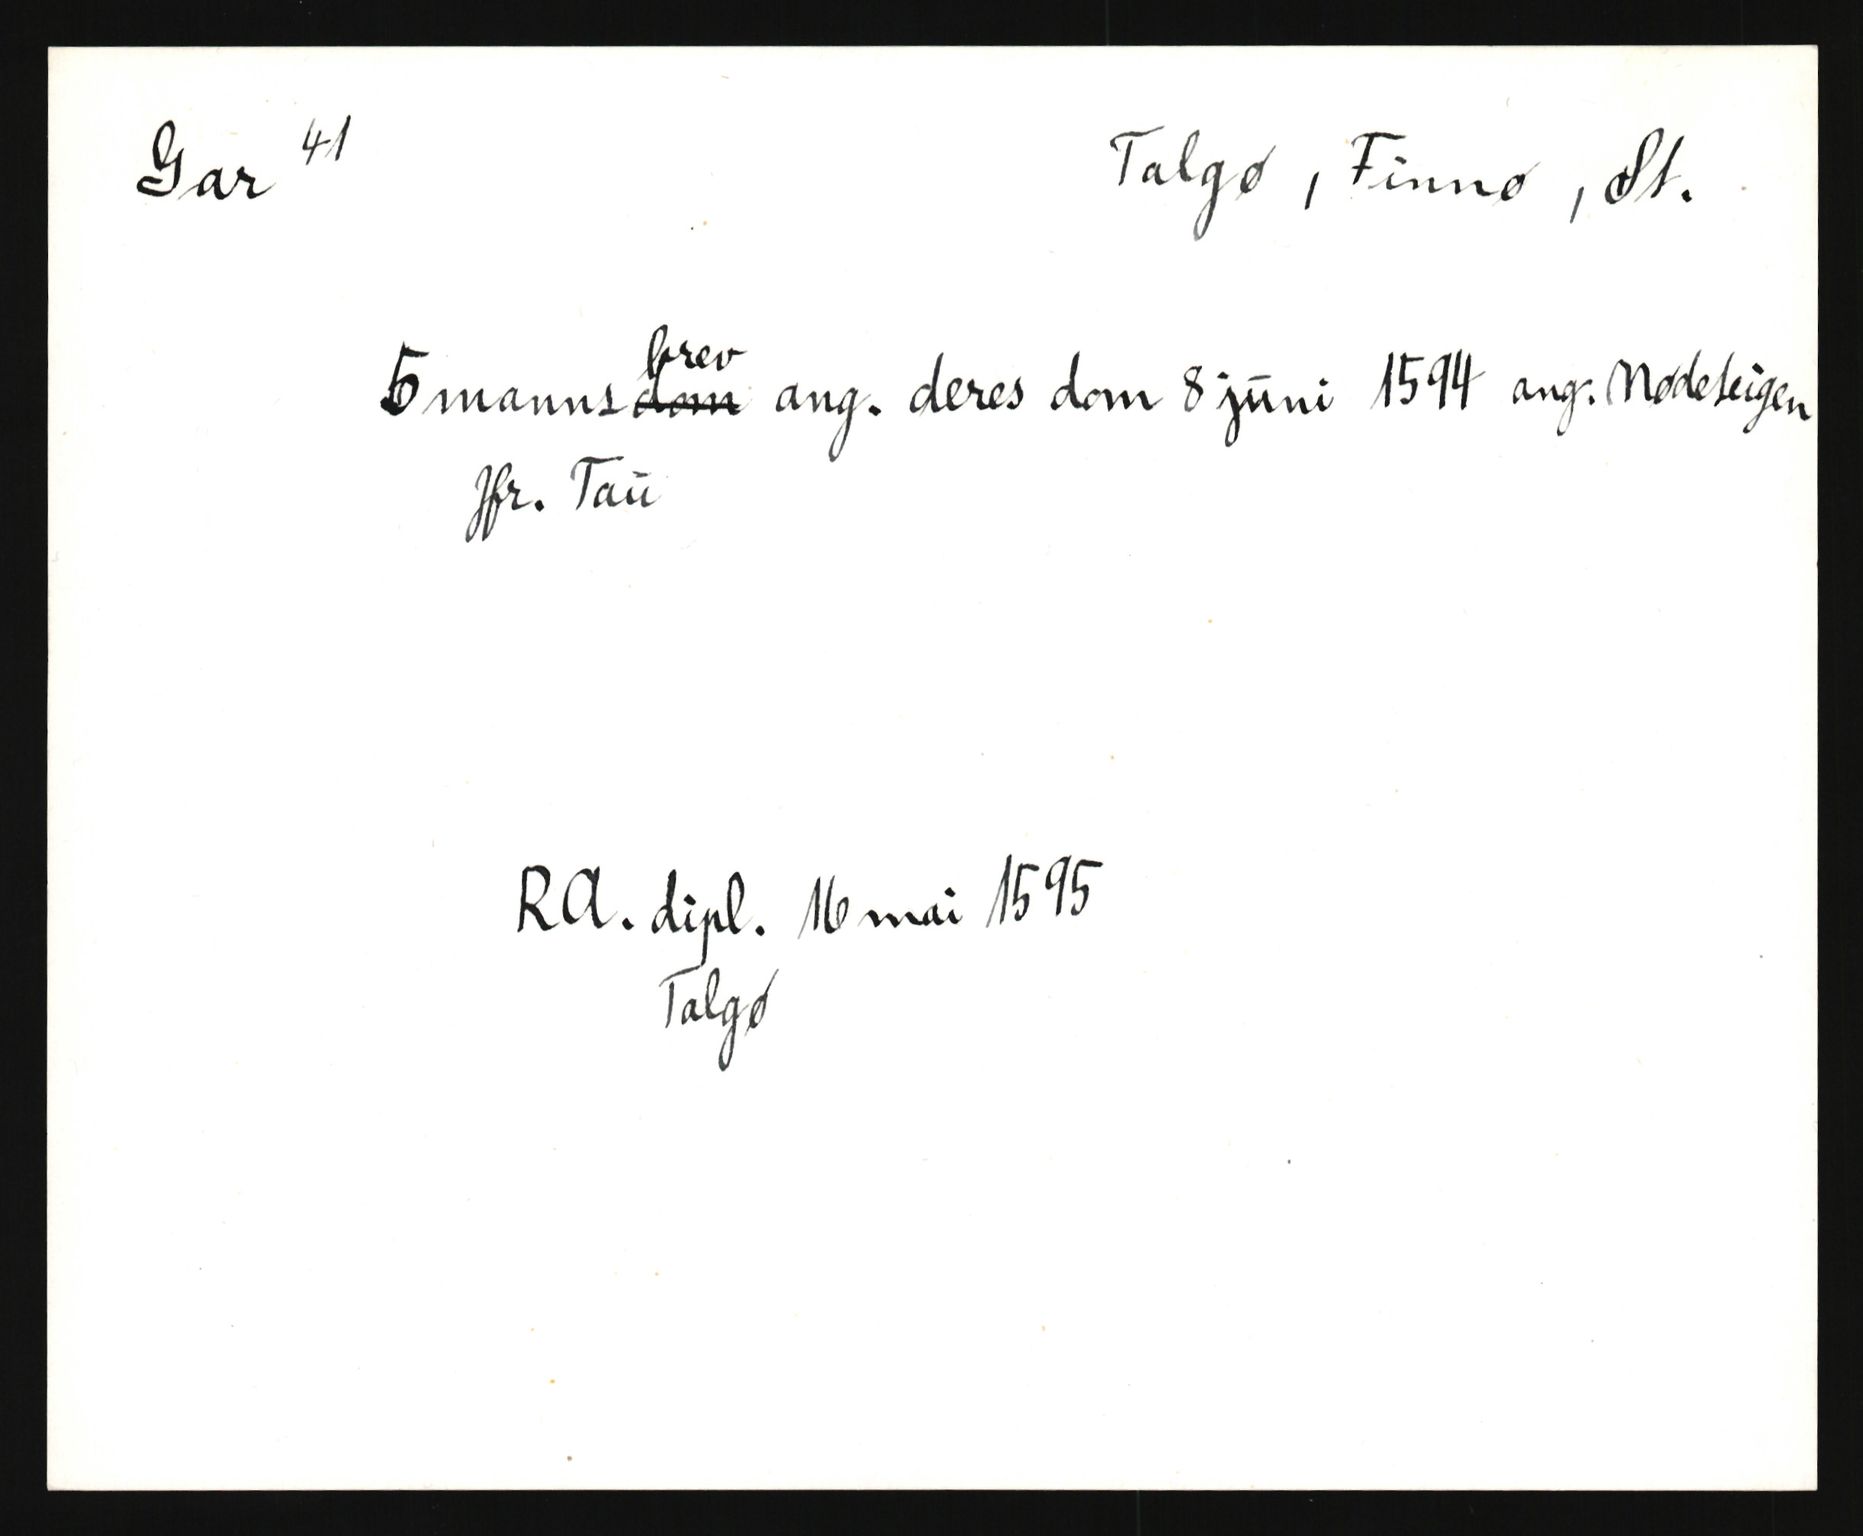 Gar 41
Talgø, Finnø, St.
5 manns dom brev ang. deres dom 8 juni 1594 ang. Nødeteigen
Jfr. Tau
RA. dipl. 16 mai 1595
Talgø